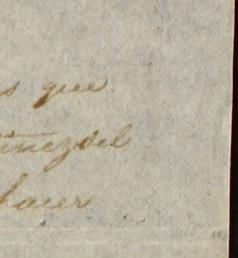 s que
inez del
hacer